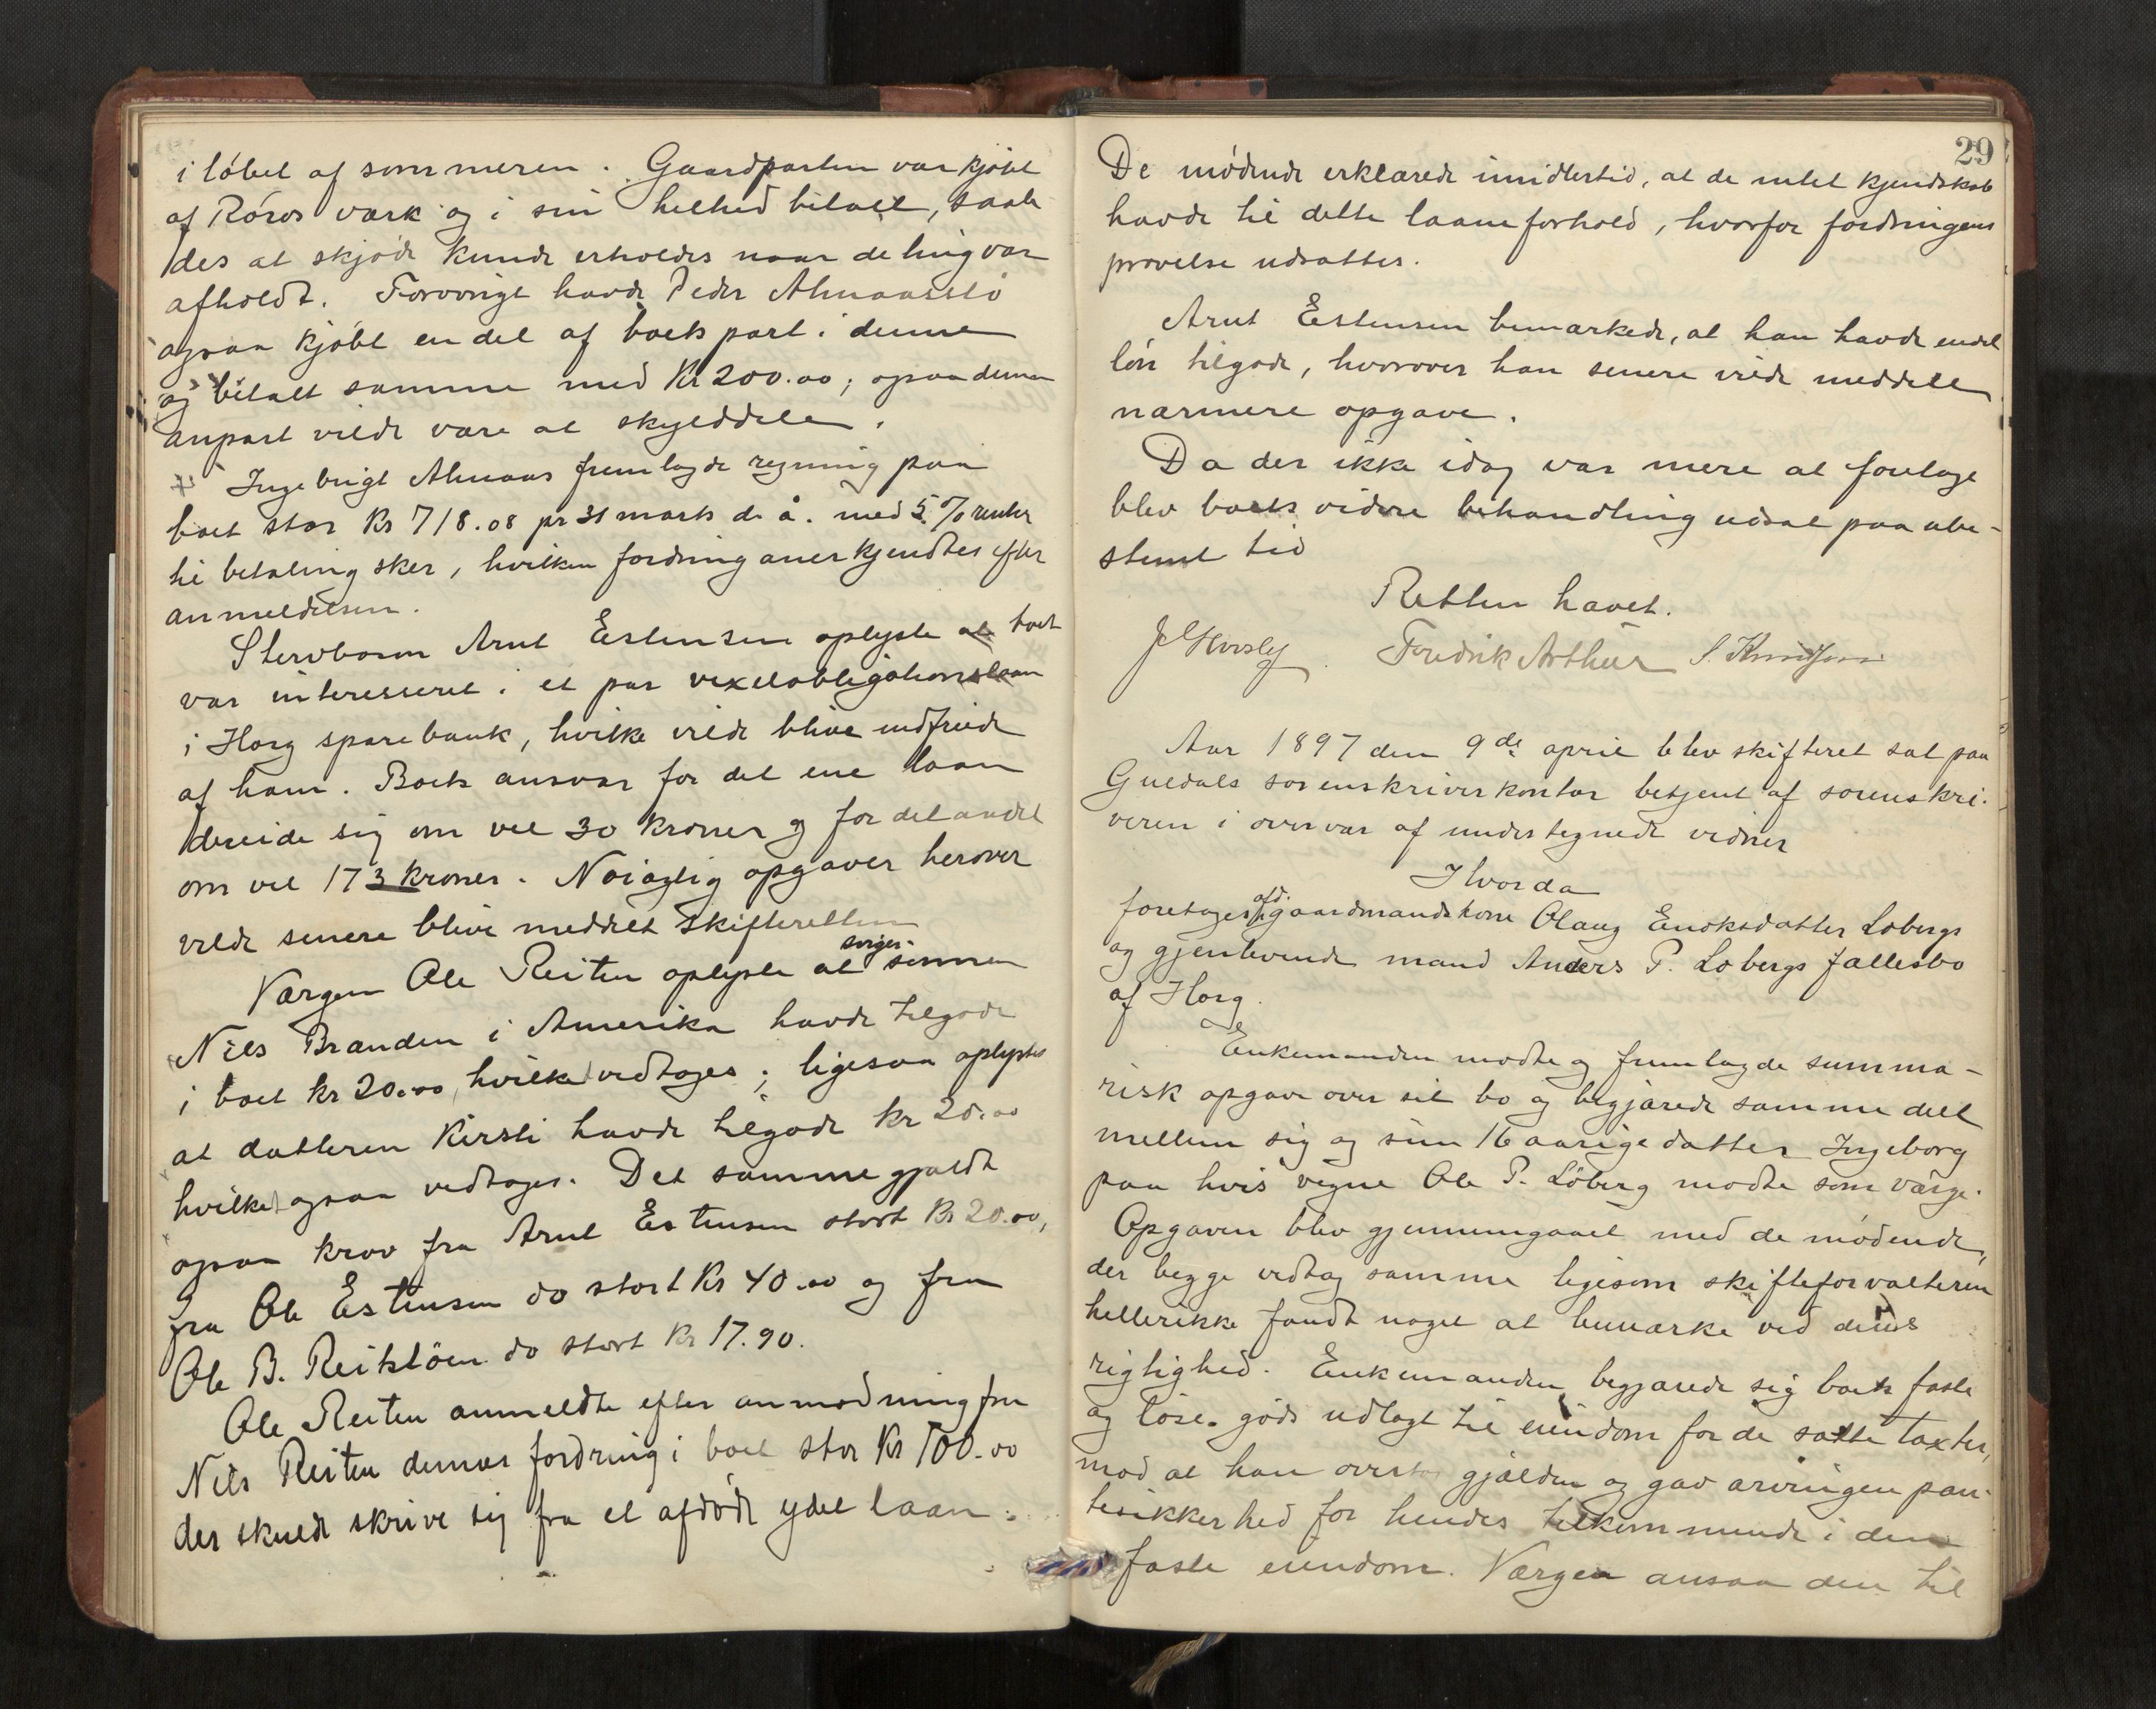 i løbet af sommeren. Gaardparten var kjøbt
af Røros værk og i sin helhed betalt, saale
des at skjøde kunde erholdes naar deling var
afholdt. Forøvrigt havde Peder Almaasslø
ogsaa kjøbt en del af boets part i denne
og betalt samme med Kr 200.00; ogsaa denne
anpart vilde være at skylddele.
Ingebrigt Almaas fremlagde regning paa
boet stor Kr 718.08 pr 31 marts d. å. med 5 % renter
til betaling sker, hvilken fordring anerkjendtes efter
anmeldelsen.
Stervboson Arnt Estensen oplyste at boet
var interesseret i et par vexelobligationslaan
i Horg sparebank, hvilke vilde blive indfriede
af ham. Boets ansvar for det ene laan
dreide sig om vel 30 kroner og for det andet
om vel 173 kroner. Nøiagtig opgaver herover
vilde senere blive meddelt skifteretten
Værgen Ole Reiten oplyste at sønnen
Nils Branden i Amerika havde tilgode
i boet kr 20.00, hvilket vedtoges; ligesaa oplystes
at datteren Kirsti havde tilgode kr 20.00
hvilket ogsaa vedtoges. Det samme gjaldt
ogsaa krav fra Arnt Estensen stort Kr 20.00,
fra Ole Estensen do stort Kr 40.00 og fra
Ole B. Reitsløen do stort Kr 17.90.
Ole Reiten anmeldte efter anmodning fra
Nils Reiten dennes fordring i boet stor Kr 100.00
der skulde skrive sig fra et afdøde ydet laan.
29
De mødende erklærede imidlertid, at de intet kjendskab
havde til dette laaneforhold, hvorfor fordringens
prøvelse udsattes.
Arnt Estensen bemærkede, at han havde endel
løn tilgode, hvorover han senere vilde meddele
nærmere opgave.
Da der ikke idag var mere at foretage
blev boets videre behandling udsat paa ube-
stemt tid
Retten hævet.
Fredrik Arthur
Aar 1897 den 9de april blev skifteret sat paa
Guldals sorenskriverkontor betjent af sorenskri-
veren i overvær af undertegnede vidner
Hvorda
foretoges afd. gaardmandskone Olaug Enoksdatter Løbergs
og gjenlevende mand Anders P. Løbergs fællesbo
af Horg.
Enkemanden mødte og fremlagde summa-
risk opgave over sit bo og begjærede samme delt
mellem sig og sin 16 aarige datter Ingeborg
paa hvis vegne Ole P. Løberg mødte som værge.
Opgaven blev gjennemgaaet med de mødende,
der begge vedtog samme ligesom skifteforvalteren
hellerikke fandt noget at bemærke ved dens
rigtighed. Enkemanden begjærede sig boets faste
og løse gods udlagt til eiendom for de satte taxter,
mod at han overtog gjælden og gav arvingen pan-
tesikkerhed for hendes tilkommende i den
faste eiendom. Værgen ansaa den til